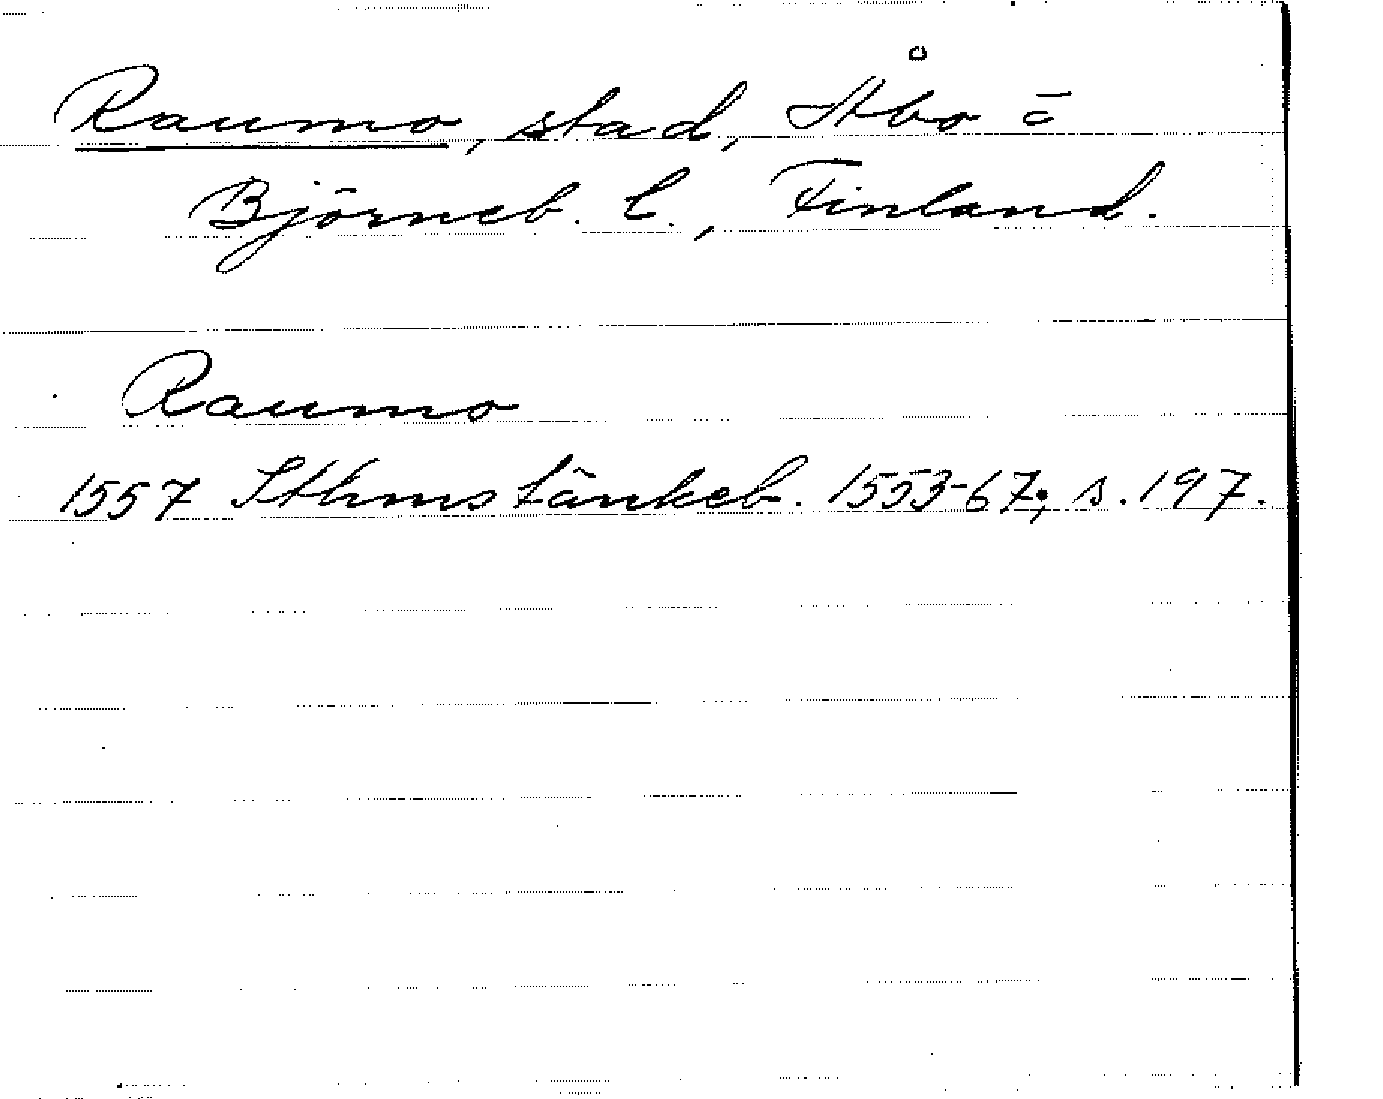 Raumo, stad, Åbo o
Björneb. l., Finland.
Raumo
1557 Sthms tänkeb. 1553-67, s. 197.